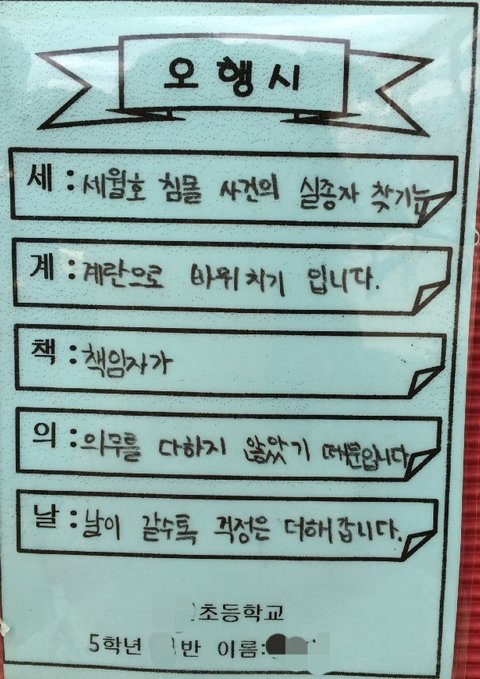 오행시
세 : 세월호 침몰 사건의 실종자 찾기는
계 : 계란으로 바위치기 입니다.
책 : 책임자가
의 : 의무를 다하지 않았기 때문입니다
날 : 날이 갈수록 걱정은 더해 갑니다.
초등학교
5학년 반 이름: